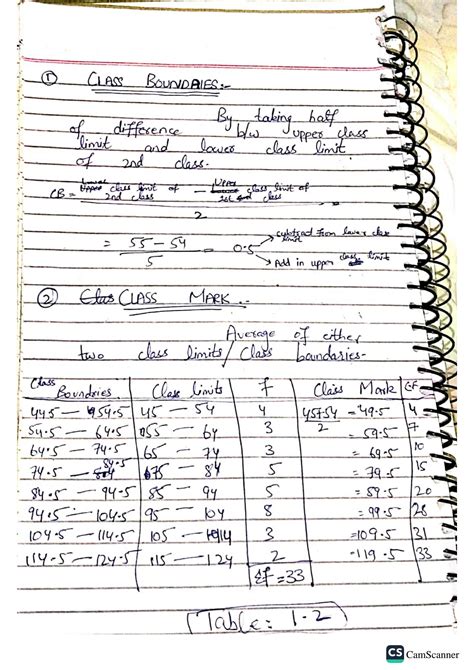 ① CLASS BOUNDRIES:-
By taking half
of difference b/w upper class
limit and lower class limit
of 2nd class.
CB = Lower class limit of 2nd class - Upper class limit of 1st class
2
= 55 - 54 = 0.5 → subtract from lower class limit
5 → Add in upper class limits
② CLASS MARK :-
Average of either
two class limits / Class boundaries-
Class Boundries Class limits f Class Mark CF
44.5 — 54.5 45 — 54 4 45+54/2 = 49.5 4
54.5 — 64.5 55 — 64 3 = 59.5 7
64.5 — 74.5 65 — 74 3 = 69.5 10
74.5 — 84.5 75 — 84 5 = 79.5 15
84.5 — 94.5 85 — 94 5 = 89.5 20
94.5 — 104.5 95 — 104 8 = 99.5 28
104.5 — 114.5 105 — 114 3 = 109.5 31
114.5 — 124.5 115 — 124 2 = 119.5 33
Σf = 33
Table: 1.2
CS CamScanner